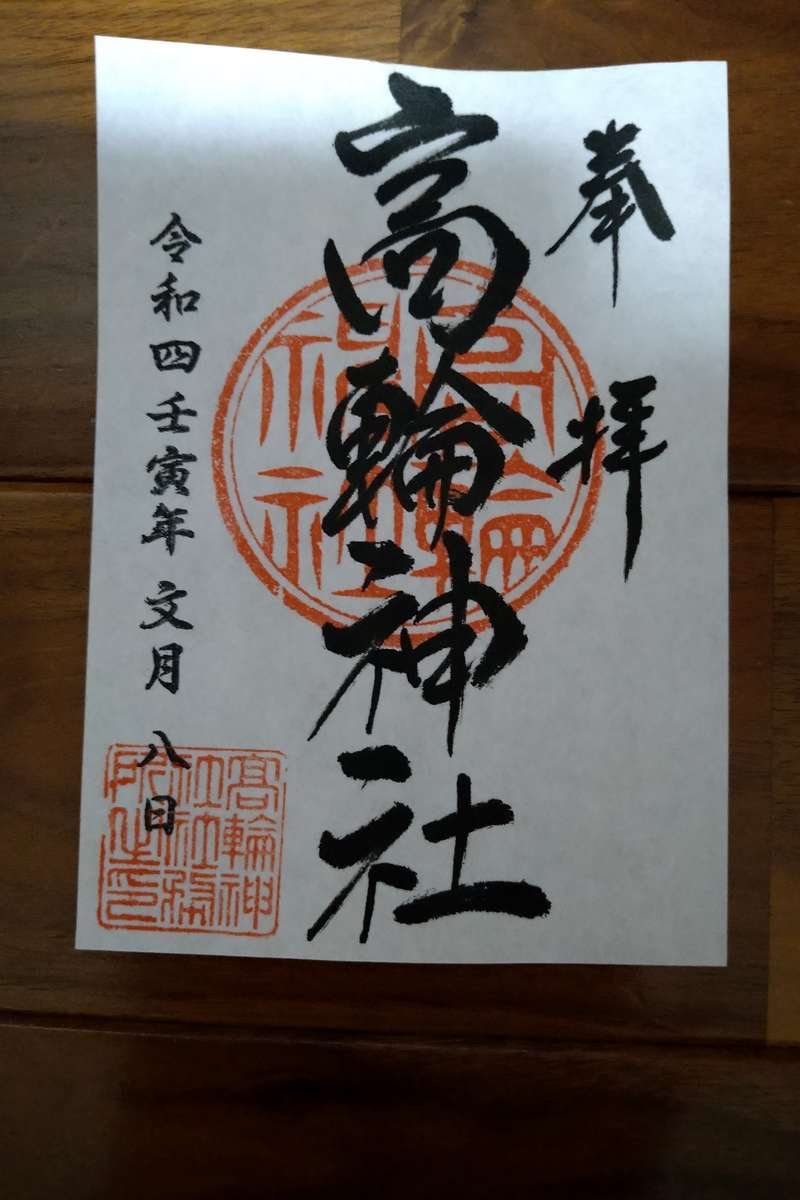 奉拝
高輪神社
令和四壬寅年 文月 八日
高輪神社
高輪神社社務所之印